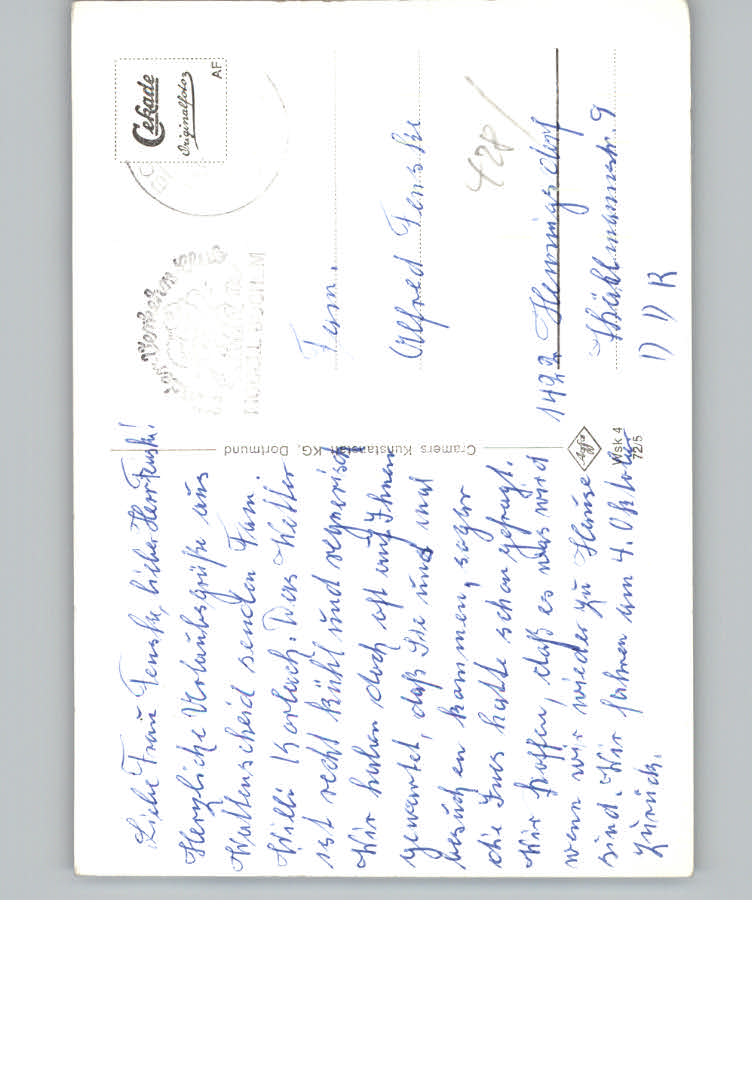 Liebe Frau Fenske, lieber Herr Fenske!
Herzliche Urlaubsgrüße aus
Wattenscheid senden Fam.
Willi Korlach. Das Wetter
ist recht kühl und regnerisch
Wir haben doch oft auf Ihnen
gewartet, daß Sie uns mal
besuchen kommen, sogar
die Ines hatte schon gefragt.
Wir hoffen, daß es was wird
wenn wir wieder zu Hause
sind. Wir fahren am 4. Oktober
zurück.
Cramers Kunstanstalt KG, Dortmund
Agfa
Wsk 4
72/5
Cekade
Originalfoto
AF
428/
Fam.
Alfred Fenske
1422 Hennigsdorf
9
DDR